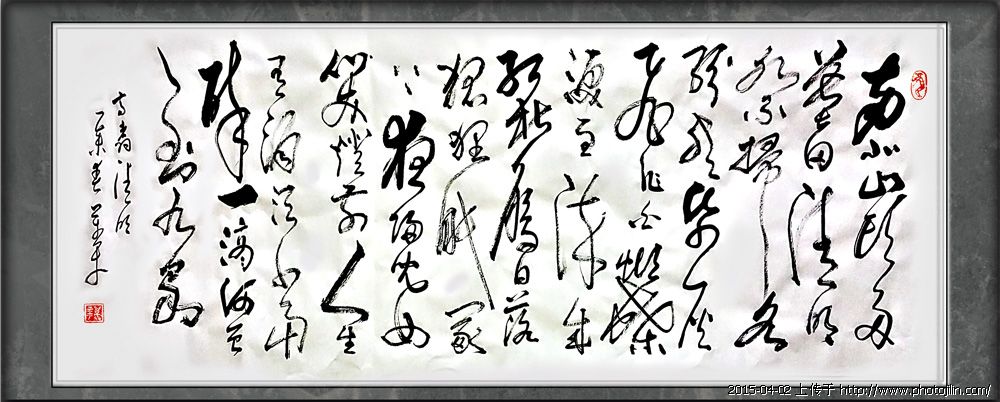 南北山頭多
墓田清明
祭掃各
紛然紙灰
飛作白蝴蝶
淚血染成
紅杜鵑日落
狐狸眠冢
上夜歸兒女
笑燈前人生
有酒須當
醉一滴何曾
到九泉
高翥清明
2015-04-02 上传于 http://www.photojilin.com/